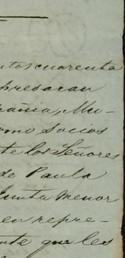 ntos cuarenta
xpresaran
añia, Mu-
omo Socios
te los Señores
de Paula
Junta Menor
en repre-
nte que les